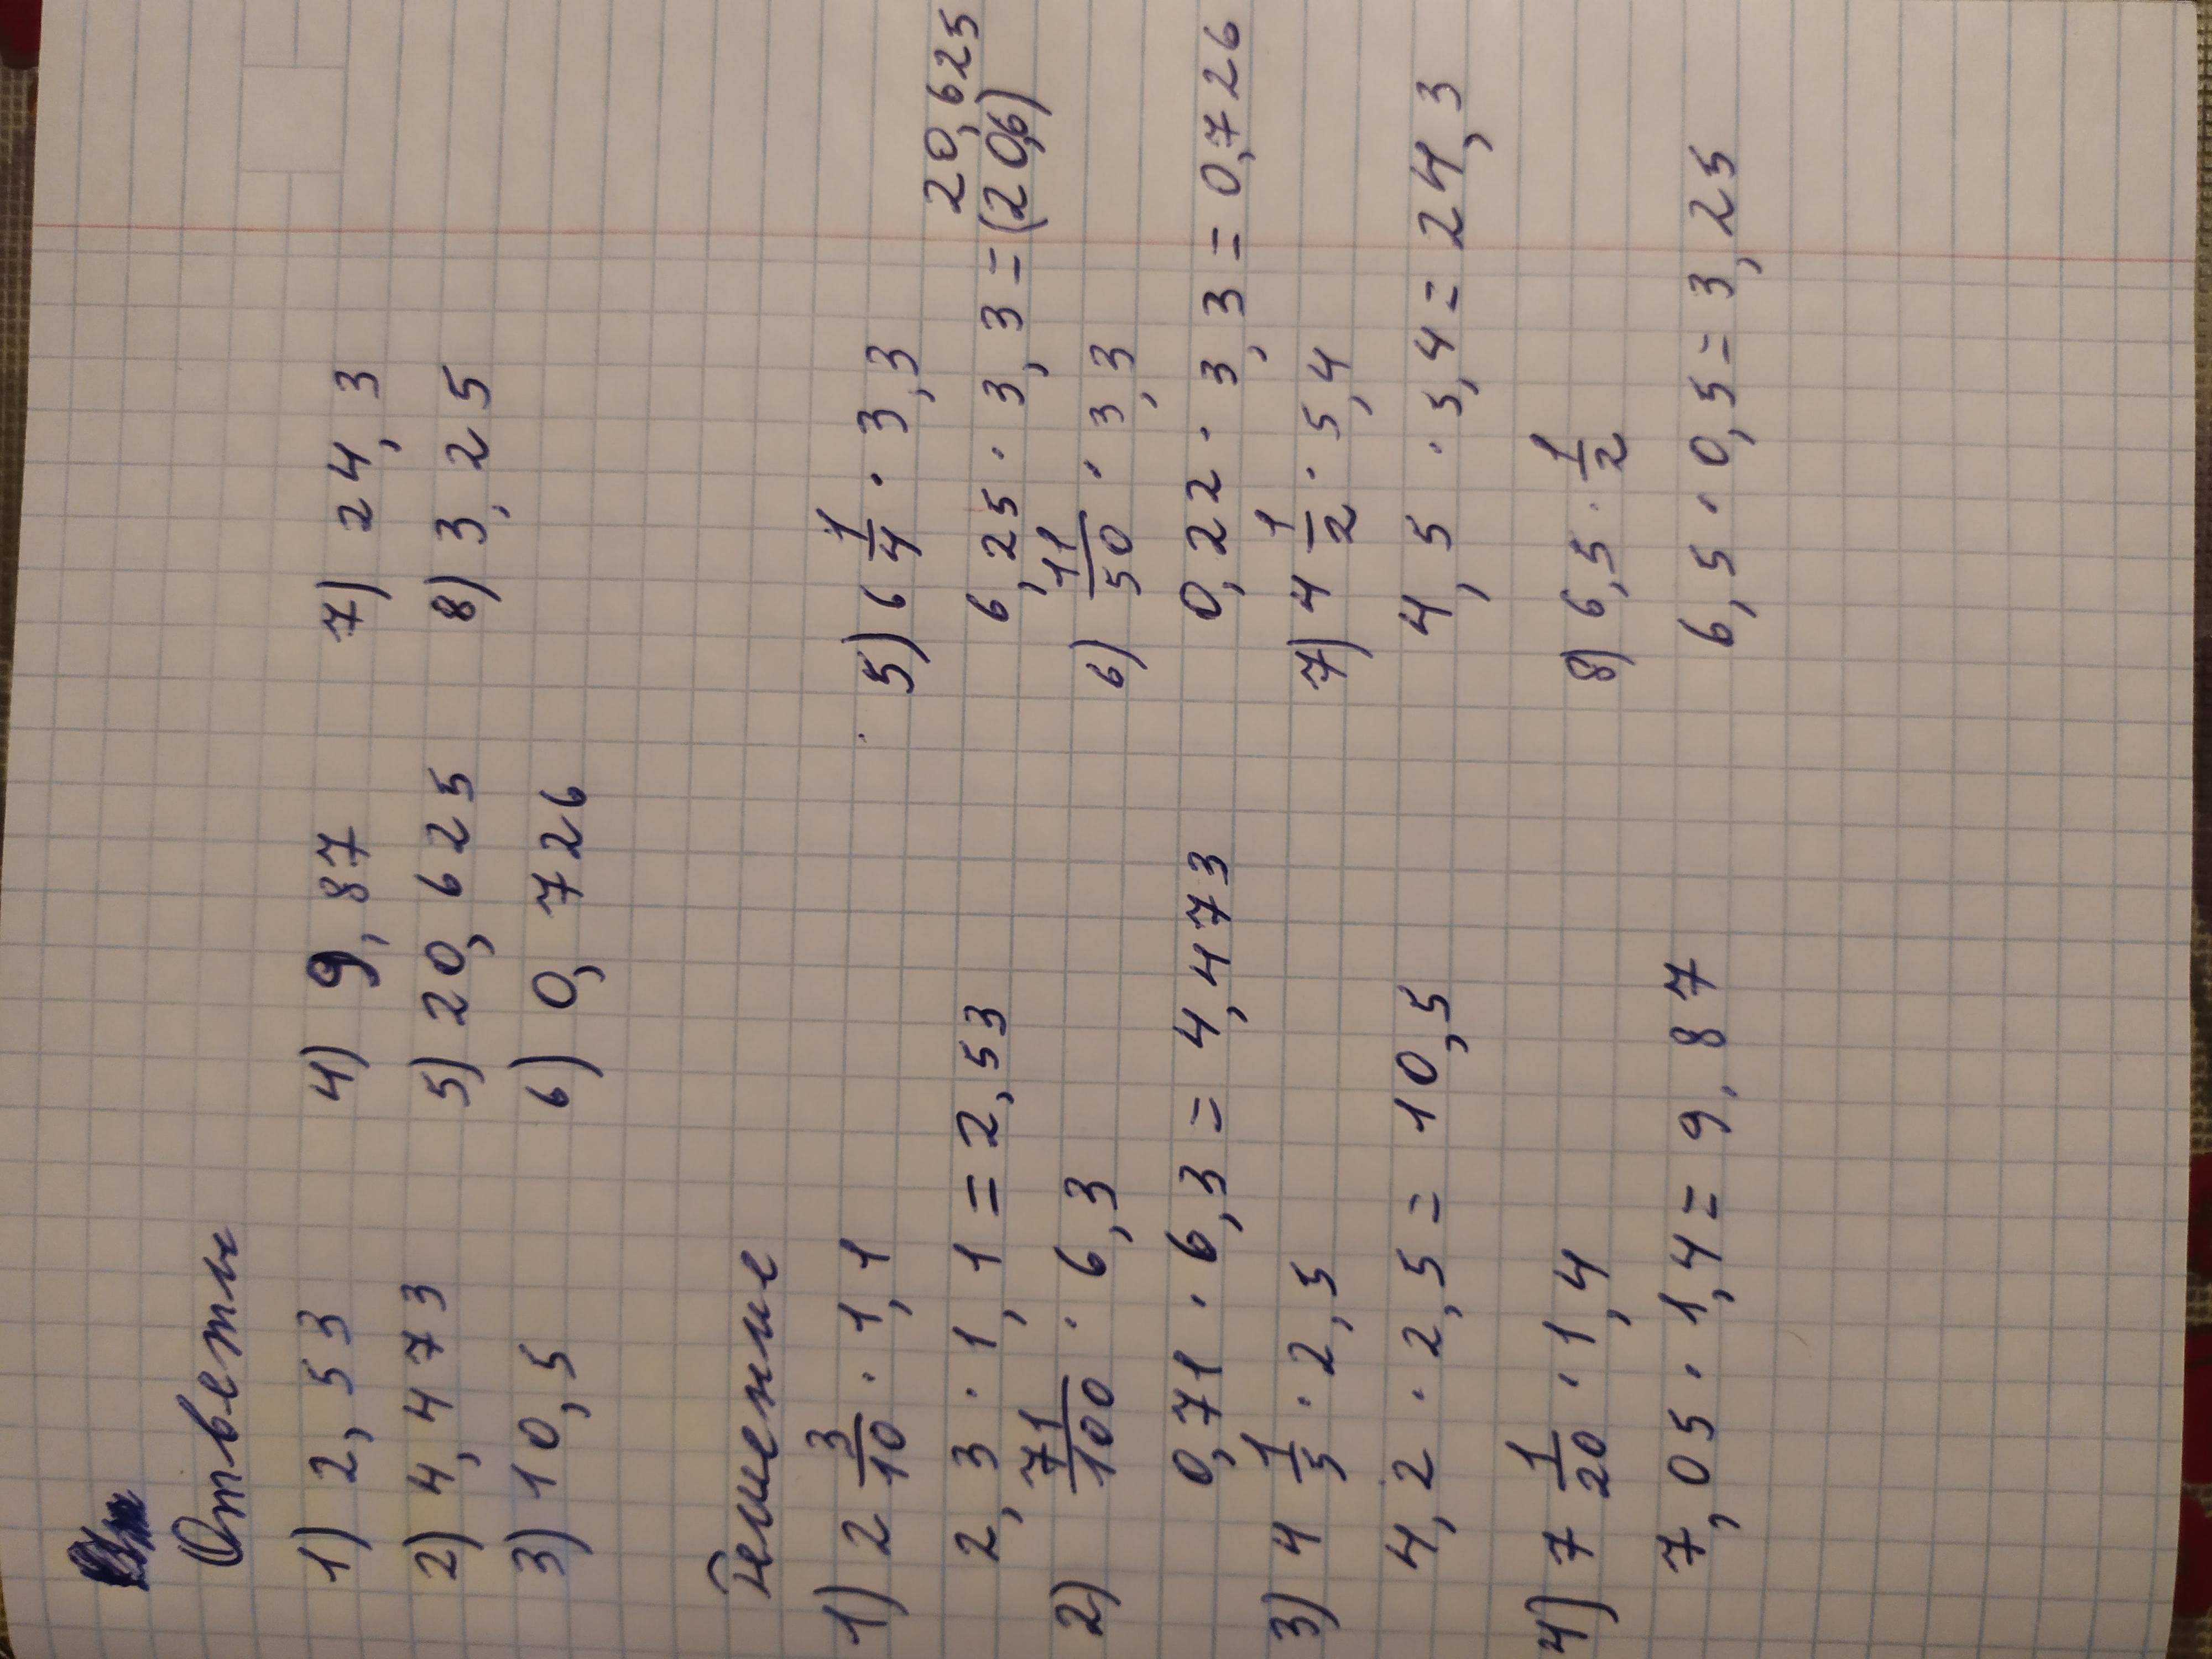 Ответы
1) 2,53
2) 4,473
3) 10,5
4) 9,87
5) 20,625
6) 0,726
7) 24,3
8) 3,25
Решение
1) 2 3/10 · 1,1
2,3 · 1,1 = 2,53
2) 71/100 · 6,3
0,71 · 6,3 = 4,473
3) 4 1/5 · 2,5
4,2 · 2,5 = 10,5
4) 7 1/20 · 1,4
7,05 · 1,4 = 9,87
5) 6 1/4 · 3,3
20,625
6,25 · 3,3 = (20,6)
6) 11/50 · 3,3
0,22 · 3,3 = 0,726
7) 4 1/2 · 5,4
4,5 · 5,4 = 24,3
8) 6,5 · 1/2
6,5 · 0,5 = 3,25